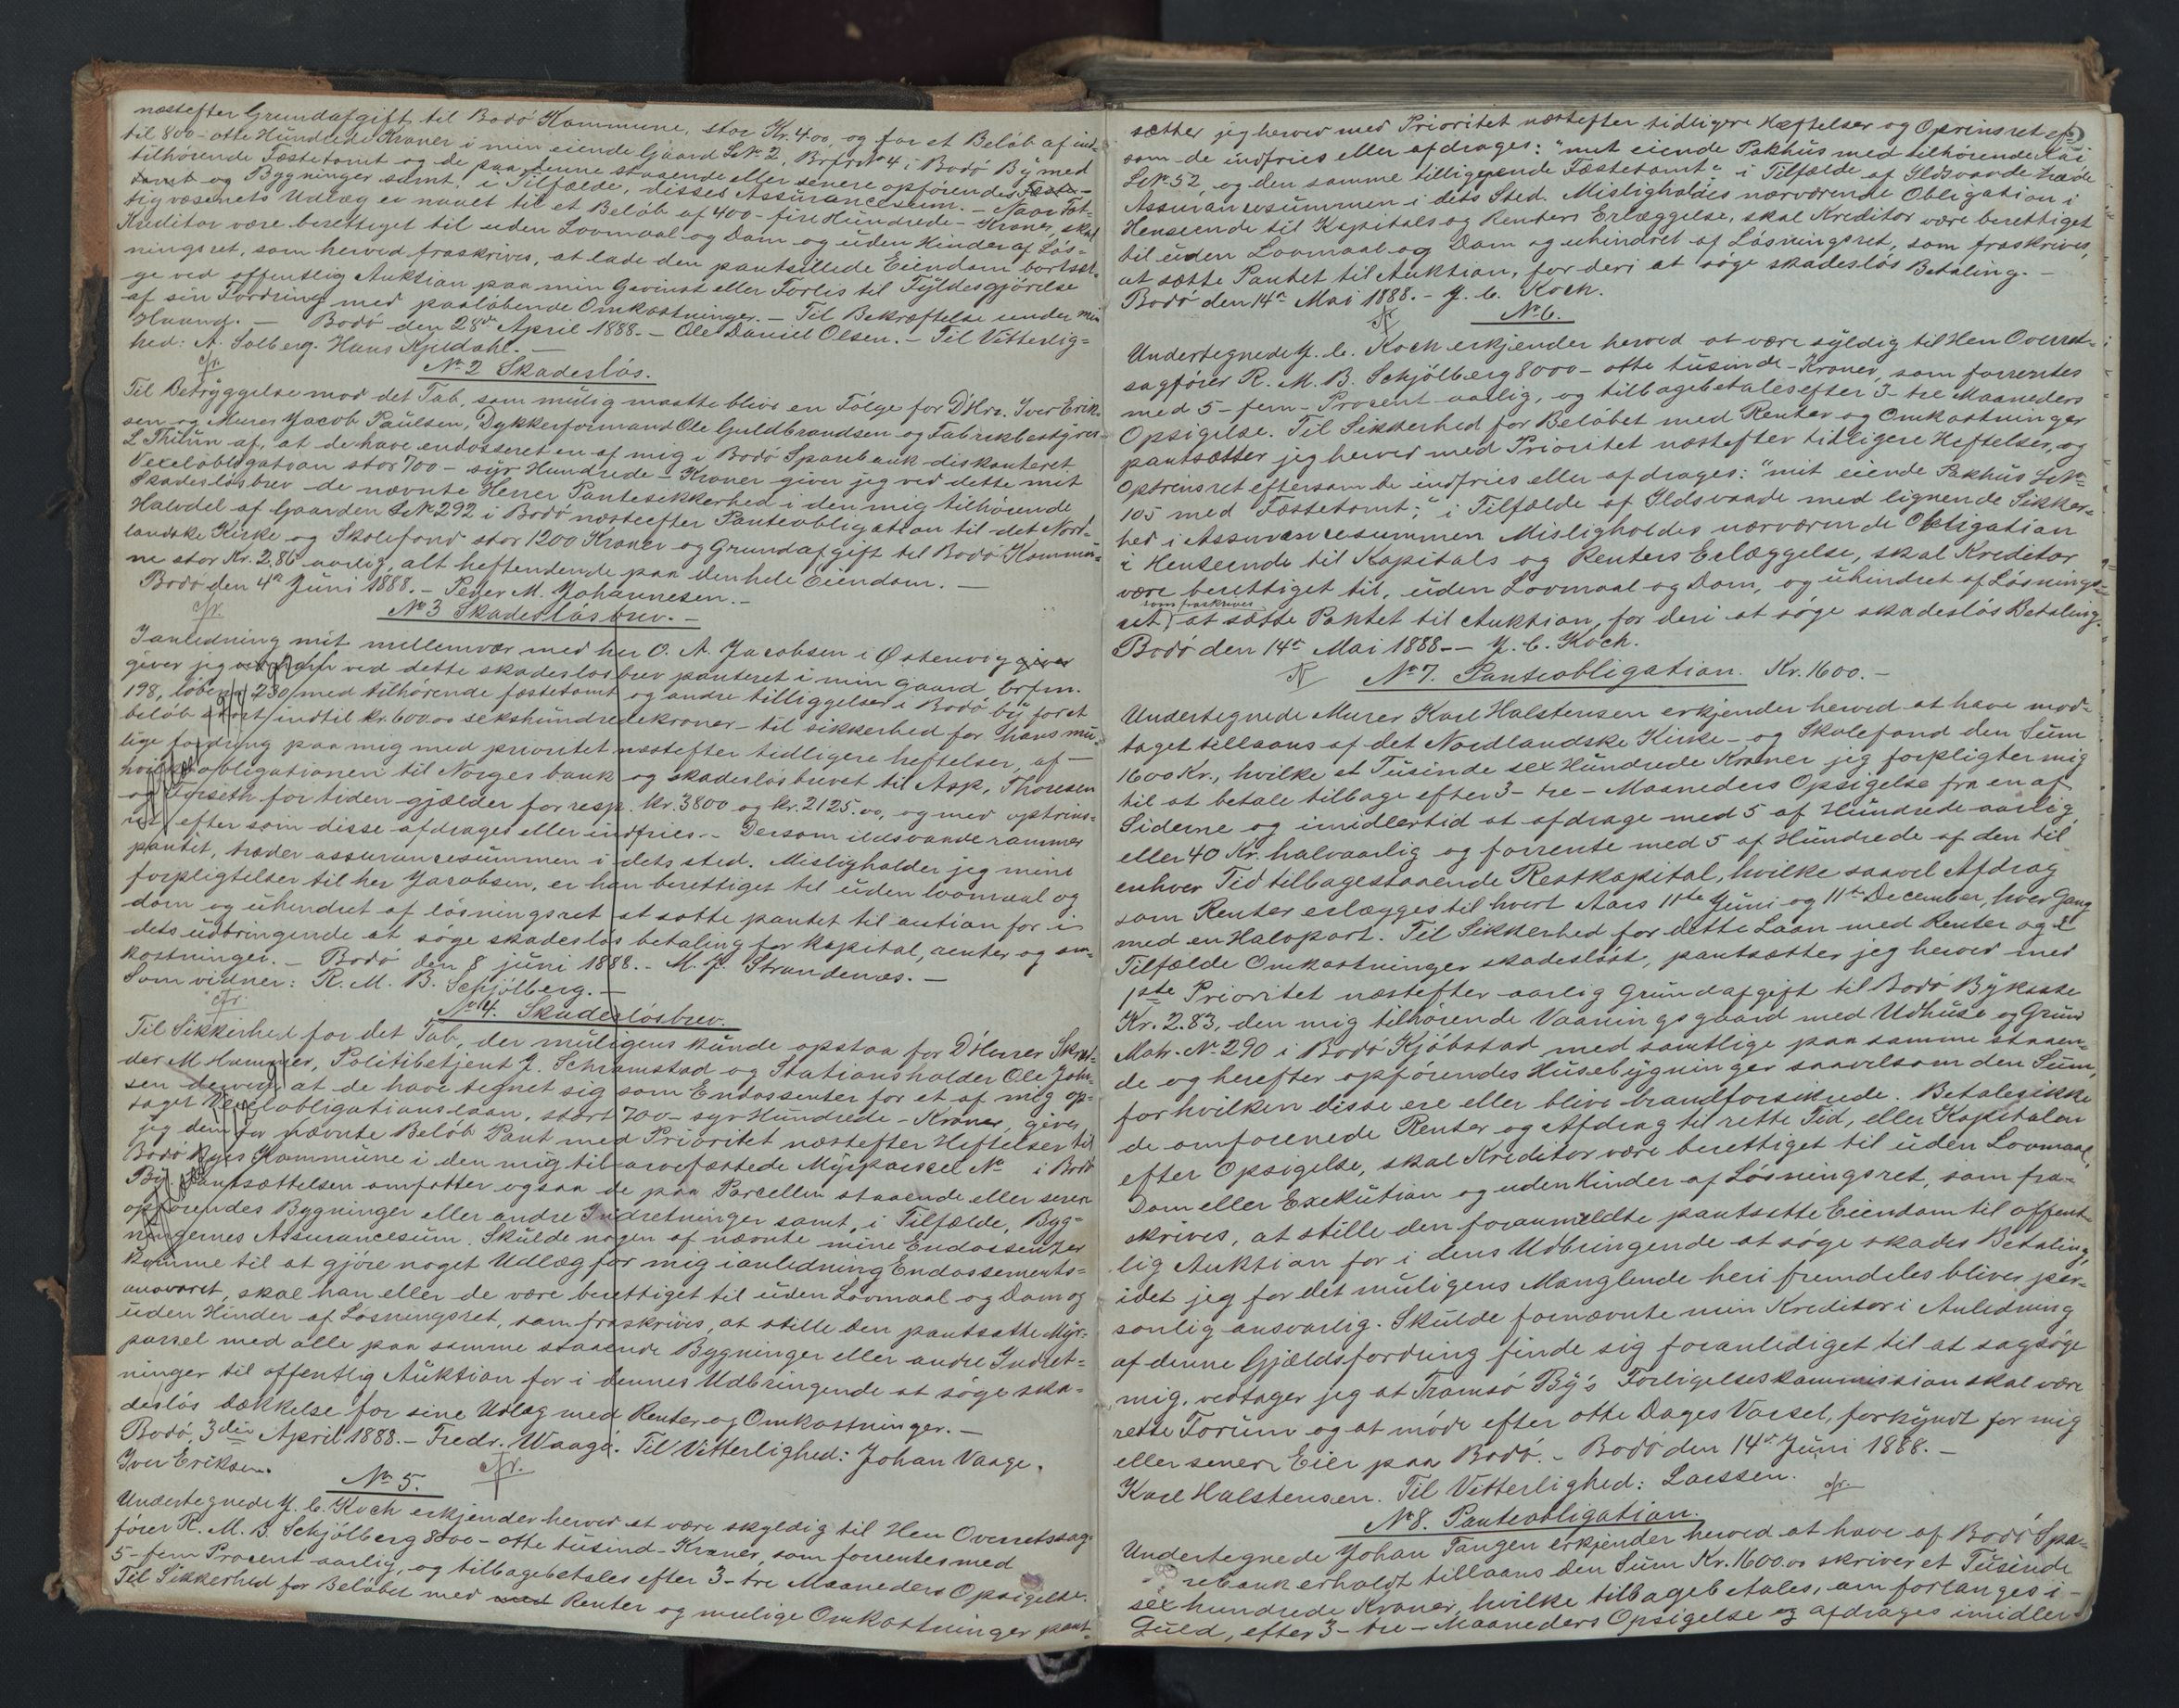 næstefter Grundafgift til Bodø Kommune, stor Kr. 4.00, og for et Beløb af ind-
til 800 - otte Hundrede Kroner i min eiende Gaard LNr. 2, Brfrst. 4 i Bodø By med
tilhørende Fæstetomt og de paa denne staaende eller senere opførendes
tomt og Bygninger samt, i Tilfælde, disses Assurancesum. - Naar
Udlæg er naaet til et Beløb af 400 - fire Hundrede - Kroner, skal
Kreditor være berettiget til uden Lovmaal og Dom og uden Hinder af Løs-
ningsret, som herved fraskrives, at lade den pantstillede Eiendom bortsæl-
ge ved offentlig Auktion paa min Gevinst eller Forlis til Fyldesgjørelse
af sin Fordring med paaløbende Omkostninger. - Til Bekræftelse under min
Haand. - Bodø den 28de April 1888. - Ole Daniel Olsen. - Til Vitterlig=
hed: A. Solberg. Hans Kjeldahl. -
No 2 Skadesløs.
Til Betryggelse mod det Tab, som mulig maatte blive en Følge for D'Hrr. Iver Erik-
sen og Murer Jacob Paulsen, Dykkerformand Ole Guldbrandsen og Fabrikbestyrer
L Thilun af, at de have endosseret en af mig i Bodø Sparebank diskonteret
Vexelobligation stor 700 - syv Hundrede - Kroner giver jeg ved dette mit
Skadesløsbrev de nævnte Herrer Pantesikkerhed i den mig tilhørende
Halvdel af Gaarden LNr. 292 i Bodø næstefter Panteobligation til det Nord-
landske Kirke og Skolefond stor 1200 Kroner og Grundafgift til Bodø Kommu-
ne stor Kr. 2,86 aarlig, alt heftendende paa den hele Eiendom. -
Bodø den 4de Juni 1888. - Peder M. Johannesen. -
No 3 Skadesløsbrev. -
I anledning mit mellemvær med her O. A. Jacobsen i Østenvog giver
giver jeg ved dette skadesløsbrev panteret i min gaard, brfrn.
198, løben. 230 med tilhørende fæstetomt og andre tilliggelser i Bodø by for et
beløb stort indtil kr. 600.00 sekshundredekroner - til sikkerhed for hans mu-
lige fordring paa mig med prioritet næstefter tidligere heftelser, af -
hvilke obligationen til Norges bank og skadesløsbrevet til Asp, Thoresen
og for tiden gjælder for resp. kr. 3800 og kr. 2125.00, og med optrins-
ret efter som disse afdrages eller indfries. - Dersom ildsvaade rammer
pantet, træder assurancesummen i dets sted. Misligholder jeg mine
forpligtelser til her Jacobsen, er han berettiget til uden lovmaal og
dom og uhindret af løsningsret at sætte pantet til auction for i
dets udbringende at søge skadesløs betaling for kapital, renter og om-
kostninger. - Bodø den 8 juni 1888. - M. J. Strandenæs. -
Som vidner: R. M. B. Schjølberg. -
No 4. Skadesløsbrev.
Til Sikkerhed for det Tab, der muligens kunde opstaa for D'Herrer Skræd-
der M Hammer, Politibetjent J. Schramstad og Stationsholder Ole John-
sen derved, at de have tegnet sig som Endossenter for et af mig op-
taget Vexelobligationslaan, stort 700 - syv Hundrede - Kroner, giver
jeg dem for nævnte Beløb Pant med Prioritet næstefter Heftelser til
Bodø Byes Kommune i den mig til arvefæstede Myrparsel No i Bodø
By. Pantsættelsen omfatter ogsaa de paa Parcellen staaende eller senere
opførendes Bygninger eller andre Indretninger samt, i Tilfælde, Byg-
ningernes Assurancesum. Skulde nogen af nævnte mine Endossenter
komme til at gjøre noget Udlæg for mig i anledning Endossements-
ansvaret, skal han eller de være berettiget til uden Lovmaal og Dom og
uden Hinder af Løsningsret, som fraskrives, at stille den pantsatte Myr-
parsel med alle paa samme staaende Bygninger eller andre Indret-
ninger til offentlig Auktion for i dennes Udbringende at søge ska-
desløs Dækkelse for sine Udlæg med Renter og Omkostninger. -
Bodø, 3die April 1888. - Fredr. Waagø. Til Vitterlighed: Johan Vaage.
Iver Eriksen.
No 5.
Undertegnede J. C. Koch erkjender herved at være skyldig til Herr Overretssag-
fører R. M. B. Schjølberg 8000 - otte tusind - Kroner, som forrentes med
5 - fem Procent aarlig, og tilbagebetales efter 3 - tre Maaneders Opsigelse.
Til Sikkerhed for Beløbet med med Renter og mulige Omkostninger pant-
sætter jeg herved med Prioritet næstefter tidligere Heftelser og Oprinsret efter
som de indfries eller afdrages: "mit eiende Pakhus med tilhørende Kai
LNr. 52, og den samme tilliggende Fæstetomt" i Tilfælde af Ildsvaade træde
Assurancesummen i dets Sted. Misligholdes nærværende Obligation i
Henseende til Kapitals og Renters Erlæggelse, skal Kreditor være berettiget
til uden Lovmaal og Dom og uhindret af Løsningsret, som fraskrives,
at sætte Pantet til Auktion, for deri at søge skadesløs Betaling. -
Bodø den 14de Mai 1888. - J. C. Koch.
No 6.
Undertegnede J. C. Koch erkjender herved at være syldig til Herr Overret-
sagfører R. M. B. Schjølberg 8000 - otte tusinde - Kroner, som forrentes
med 5 - fem - Procent aarlig, og tilbagebetales efter 3 - tre Maaneders
Opsigelse. Til Sikkerhed for Beløbet med Renter og Omkostninger
pantsætter jeg herved med Prioritet næstefter tidligere Heftelser, og
Optrinsret eftersom de indfries eller afdrages: "mit eiende Pakhus LNr.
105 med Fæstetomt"; i Tilfælde af Ildsvaade med lignende Sikker-
hed i Assurancesummen Misligholdes nærværende Obligation
i Henseende til Kapitals og Renters Erlæggelse, skal Kreditor
være berettiget til, uden Lovmaal og Dom, og uhindret af Løsnings-
som fraskrives
ret, at sætte Pantet til Auktion, for deri at søge skadesløs Betaling.
Bodø den 14de Mai 1888 - - J. C. Koch.
No 7. Panteobligation. Kr. 1600. -
Undertegnede Murer Karl Halstensen erkjender herved at have mod-
taget tillaans af det Nordlandske Kirke- og Skolefond den Sum
1600 Kr., hvilke et Tusinde sex Hundrede Kroner jeg forpligter mig
til at betale tilbage efter 3 - tre - Maaneders Opsigelse fra en af
Siderne og imidlertid at afdrage med 5 af Hundrede aarlig
eller 40 Kr. halvaarlig og forrente med 5 af Hundrede af den til
enhver Tid tilbagestaaende Restkapital, hvilke saavel Afdrag
som Renter erlægges til hvert Aars 11te Juni og 11te December, hver Gang
med en Halvpart. Til Sikkerhed for dette Laan med Renter og i
Tilfælde Omkostninger skadesløst, pantsætter jeg herved med
1ste Prioritet næstefter aarlig Grundafgift til Bodø Bykasse
Kr. 2.83, den mig tilhørende Vaaningsgaard med Udhuse og Grund
Matr. No. 290 i Bodø Kjøbstad med samtlige paa samme staaen-
de og herefter opførendes Husebygninger saavelsom den Sum,
for hvilken disse ere eller blive brandforsikrede. Betales ikke
de omforenede Renter og Afdrag til rette Tid, eller Kapitalen
efter Opsigelse, skal Kreditor være berettiget til uden Lovmaal,
Dom eller Exekution og uden Hinder af Løsningsret, som fra-
skrives, at stille den foranmeldte pantsatte Eiendom til offent-
lig Auktion for i dens Udbringende at søge skades Betaling,
idet jeg for det muligens Manglende heri fremdeles bliver per-
sonlig ansvarlig. Skulde fornævnte min Kreditor i Anledning
af denne Gjældsfordring finde sig foranlediget til at sagsøge
mig, vedtager jeg at Tromsø By's Forligelseskommission skal være
rette Forum og at møde efter otte Dages Varsel, forkyndt for mig
eller senere Eier paa Bodø. - Bodø den 14de Juni 1888. -
Karl Halstensen. Til Vitterlighed: Larssen.
No 8. Panteobligation.
Undertegnede Johan Tangen erkjender herved at have af Bodø Spa-
rebank erholdt tillaans den Sum Kr. 1600.00 skriver et Tusinde
sex hundrede Kroner, hvilke tilbagebetales, om forlanges i -
Guld, efter 3 - tre - Maaneders Opsigelse og afdrages imidler-